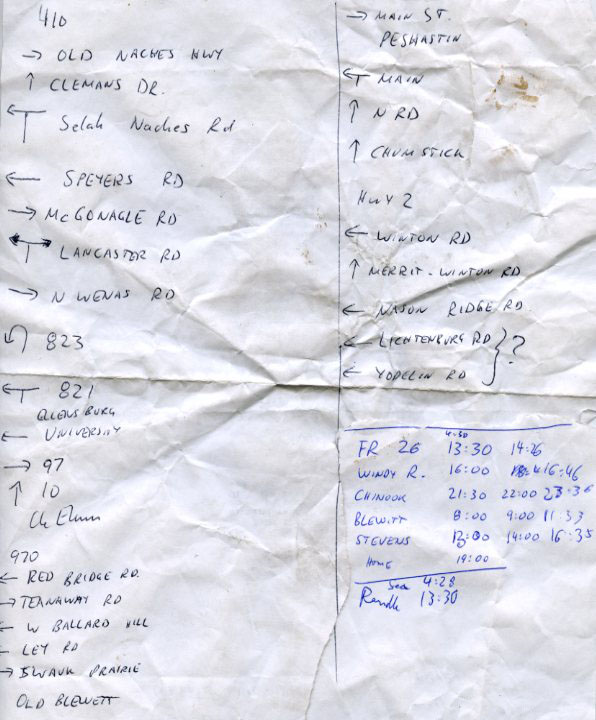 410
→ OLD NACHES HWY
↑ CLEMANS DR.
←T Selah Naches Rd
← SPEYERS RD
→ McGONAGLE RD
↔T LANCASTER RD
→ N WENAS RD
↶ 823
←T 821
ELLENSBURG
← UNIVERSITY
→ 97
↑ 10
Cle Elum
970
← RED BRIDGE RD.
→ TEANAWAY RD
← W BALLARD HILL
← LEY RD
→ SWAUK PRAIRIE
OLD BLEWETT
→ MAIN ST.
PESHASTIN
←T MAIN
↑ N RD
↑ CHUMSTICK
HWY 2
← WINTON RD
↑ MERRIT-WINTON RD
← NASON RIDGE RD
← LICHTENBURG RD } ?
← YODELIN RD
4:30
FR 26 13:30 14:26
WINDY R. 16:00 16:46
CHINOOK 21:30 22:00 23:36
BLEWITT 8:00 9:00 11:33
STEVENS 13:00 14:00 16:35
HOME 19:00
Sea 4:28
Randle 13:30